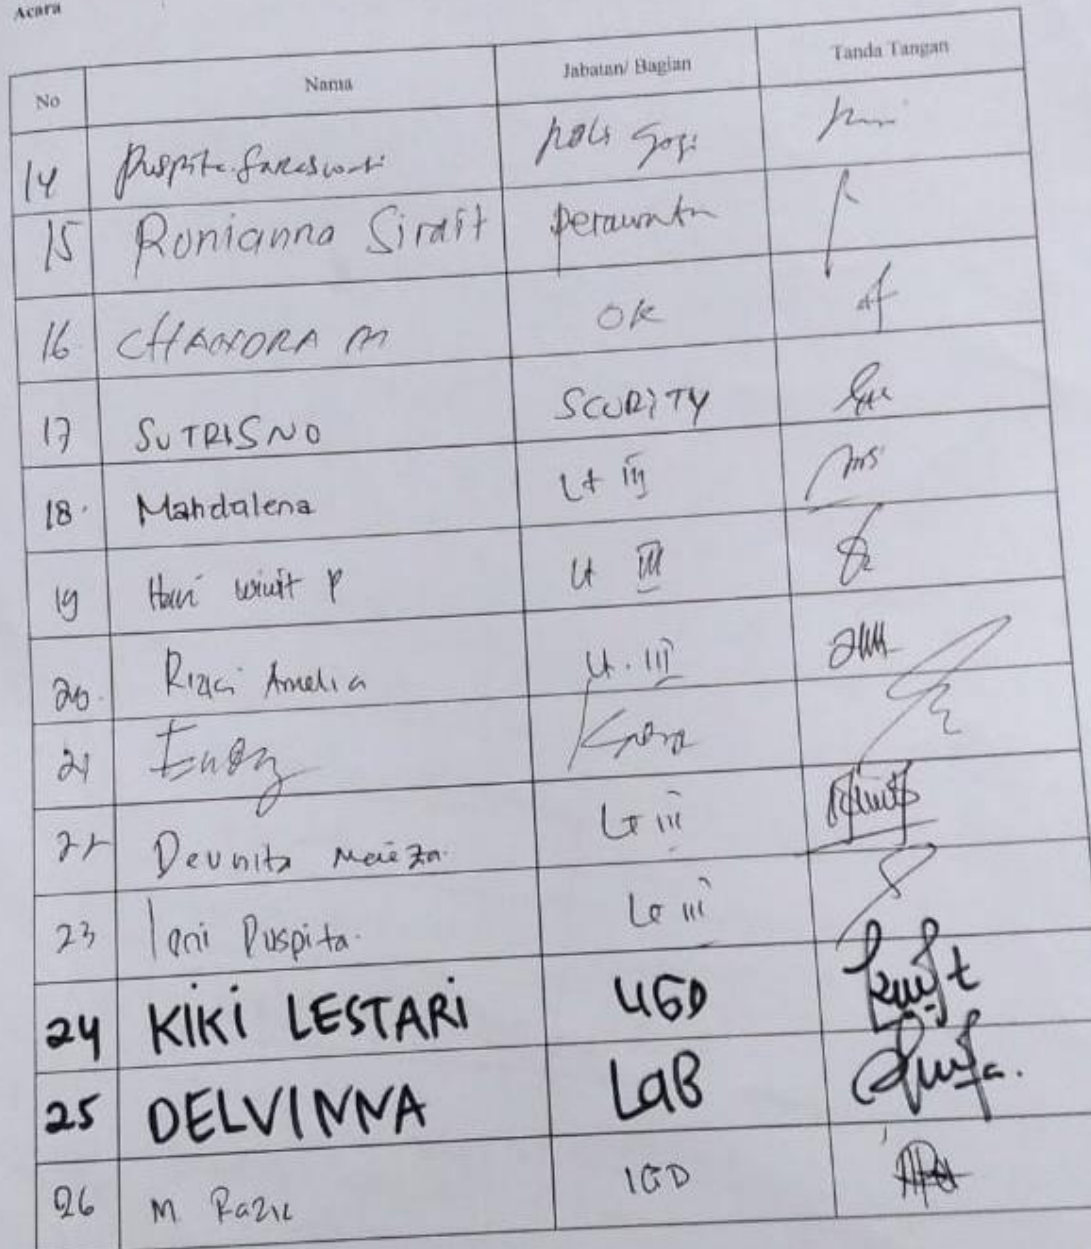 Acara
No Nama Jabatan/ Bagian Tanda Tangan
14 Puspita Saraswati Poli Gigi
15 Ronianna Sirait Perawat
16 CHANDRA M OK
17 SUTRISNO SCURITY
18. Mahdalena Lt III
19 Hari wiwit P Lt III
20. Rizki Amelia Lt. III
21
22 Devnita Lt III
23 Iani Puspita. Lt III
24 KIKI LESTARI UGD
25 DELVINNA LAB
26 M Razik IGD